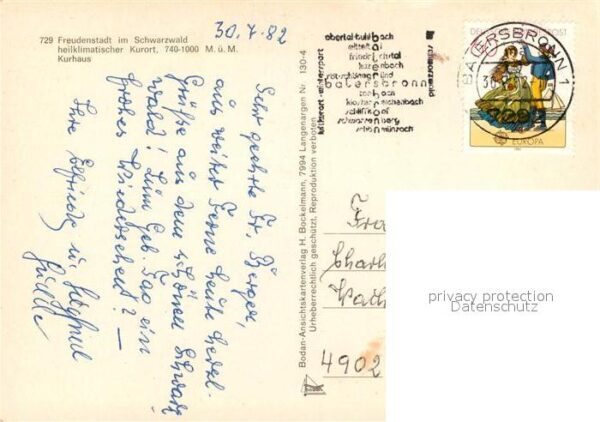 30.7.82
729 Freudenstadt im Schwarzwald
heilklimatischer Kurort, 740-1000 M. ü. M.
Kurhaus
Sehr geehrte Fr. Berger,
aus weiter Ferne heute herzl.
Grüße aus dem schönen Schwarz
wald! Zum Geb. Tag ein
frohes Wiedersehen! —
Ihre
Bodan-Ansichtskartenverlag H. Bockelmann, 7994 Langenargen Nr. 130-4
Urheberrechtlich geschützt. Reproduktion verboten
obertal-buhlbach
mitteltal
friedrichstal
huzenbach
röt-schönegrund
baiersbronn
tonbach
klosterreichenbach
schliffkopf
schwarzenberg
schönmünzach
luftkurort-wintersport
schwarzwald
BAIERSBRONN 1
DEUTSCHE BUNDESPOST
EUROPA
Fra
Charl
4902
privacy protection
Datenschutz